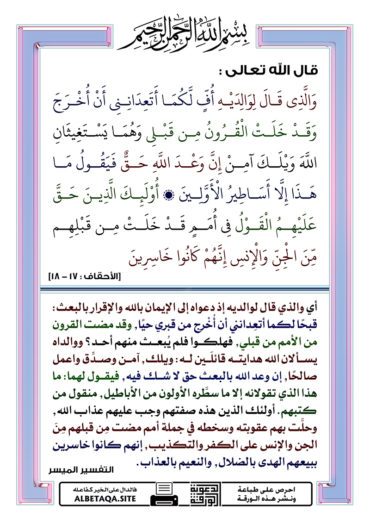 بِسْمِ اللَّهِ الرَّحْمَٰنِ الرَّحِيمِ
قال الله تعالى :
وَالَّذِى قَالَ لِوَالِدَيْهِ أُفٍّ لَّكُمَا أَتَعِدَانِنِى أَنْ أُخْرَجَ
وَقَدْ خَلَتْ الْقُرُونُ مِن قَبْلِى وَهُمَا يَسْتَغِيثَانِ
اللَّهَ وَيْلَكَ آمِنْ إِنَّ وَعْدَ اللَّهِ حَقٌّ فَيَقُولُ مَا
هَذَا إِلَّا أَسَاطِيرُ الْأَوَّلِينَ ۞ أُوْلَئِكَ الَّذِينَ حَقَّ
عَلَيْهِمُ الْقَوْلُ فِى أُمَمٍ قَدْ خَلَتْ مِن قَبْلِهِم
مِّنَ الْجِنِّ وَالْإِنسِ إِنَّهُمْ كَانُوا خَاسِرِينَ
[الأحقاف : ١٧ – ١٨]
أي والذي قال لوالديه إذ دعواه إلى الإيمان بالله والإقرار بالبعث:
قبحًا لكما أتعِدانني أن أُخرج من قبري حيًا, وقد مضت القرون
من الأمم من قبلي, فهلكوا فلم يُبعث منهم أحد؟ ووالداه
يسألان الله هدايته قائلَين له: ويلك, آمن وصدِّق واعمل
صالحًا, إن وعد الله بالبعث حق لا شك فيه, فيقول لهما: ما
هذا الذي تقولانه إلا ما سطَّره الأولون من الأباطيل, منقول من
كتبهم. أولئك الذين هذه صفتهم وجب عليهم عذاب الله,
وحلَّت بهم عقوبته وسخطه في جملة أمم مضت مِن قبلهم مِنَ
الجن والإنس على الكفر والتكذيب, إنهم كانوا خاسرين
ببيعهم الهدى بالضلال, والنعيم بالعذاب.
التفسير الميسر
احرص على طباعة
ونشر هذه الورقة
الدعوية
الورقة
فالدال على الخير كفاعله
ALBETAQA.SITE